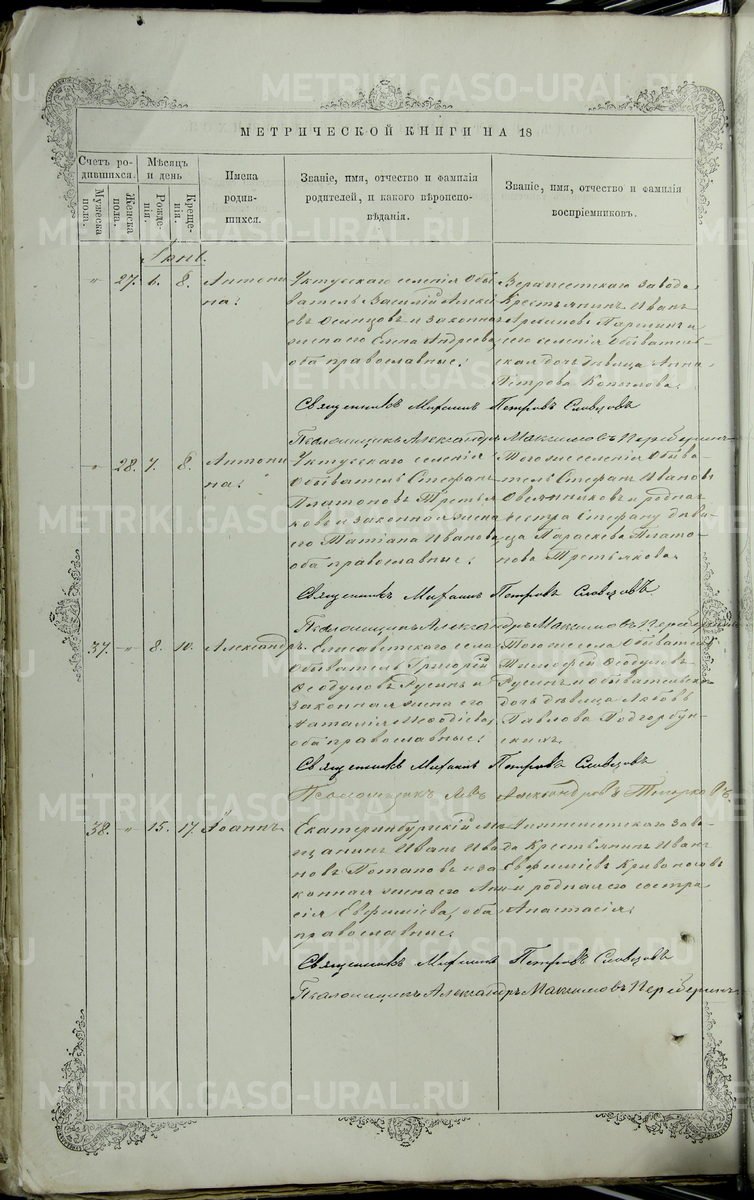 МЕТРИЧЕСКОЙ КНИГИ НА 18
Счетъ ро-
дившихся.
Мужеска
пола.
Женска
пола.
Мѣсяцъ
и день
Рожде-
нія.
Креще-
нія.
Имена
родив-
шихся.
Званіе, имя, отчество и фамилія
родителей, и какого вѣроиспо-
вѣданія.
Званіе, имя, отчество и фамилія
воспріемниковъ.
27. 6. 8. Антони
на.
Уктусскаго селенія Обы
ватель Василій Алексѣ
евъ и законная
жена его Елена Андреева
оба православные.
Верхисетскаго завода
Крестьянинъ Иванъ
и
сего селенія Обыватель
ская дочь дѣвица Анна
Петрова Копылова.
Священникъ Михаилъ Петровъ Словцовъ
Псаломщикъ Александръ Максимовъ
28. 7. 8. Антони
на.
Уктусскаго селенія
Обыватель Стефанъ
Платоновъ Третья
ковъ и законная жена
его Татіана Иванова,
оба православные.
Тогоже селенія Обыва-
тель Стефанъ Ивановъ
Овсянниковъ и родная
сестра Стефану дѣви-
ца Параскева Плато-
нова Третьякова.
Священникъ Михаилъ Петровъ Словцовъ
Псаломщикъ Александръ Максимовъ
37. " 8. 10. Александръ
Елисаветскаго села
Обыватель Григорій
Ѳеодуловъ Русинъ и
законная жена его
Наталія Меѳодіева,
оба православные.
Тогоже села Обыватель
Тимофей Ѳеодуловъ
Русинъ и обывательская
дочь дѣвица Любовь
Павлова Подгорбун-
скихъ.
Священникъ Михаилъ Петровъ Словцовъ
Псаломщикъ Левъ Александровъ
38. " 15. 17. Іоаннъ
Екатеринбургскій мѣ
щанинъ Иванъ Ива
новъ Потаповъ и за
конная жена его Ана
сія Евфиміева, оба
православные.
завода
Крестьянинъ Иванъ
Евфиміевъ Кривоноговъ
и родная его сестра
Анастасія.
Священникъ Михаилъ Петровъ Словцовъ
Псаломщикъ Александръ Максимовъ
METRIKI.GASO-URAL.RU